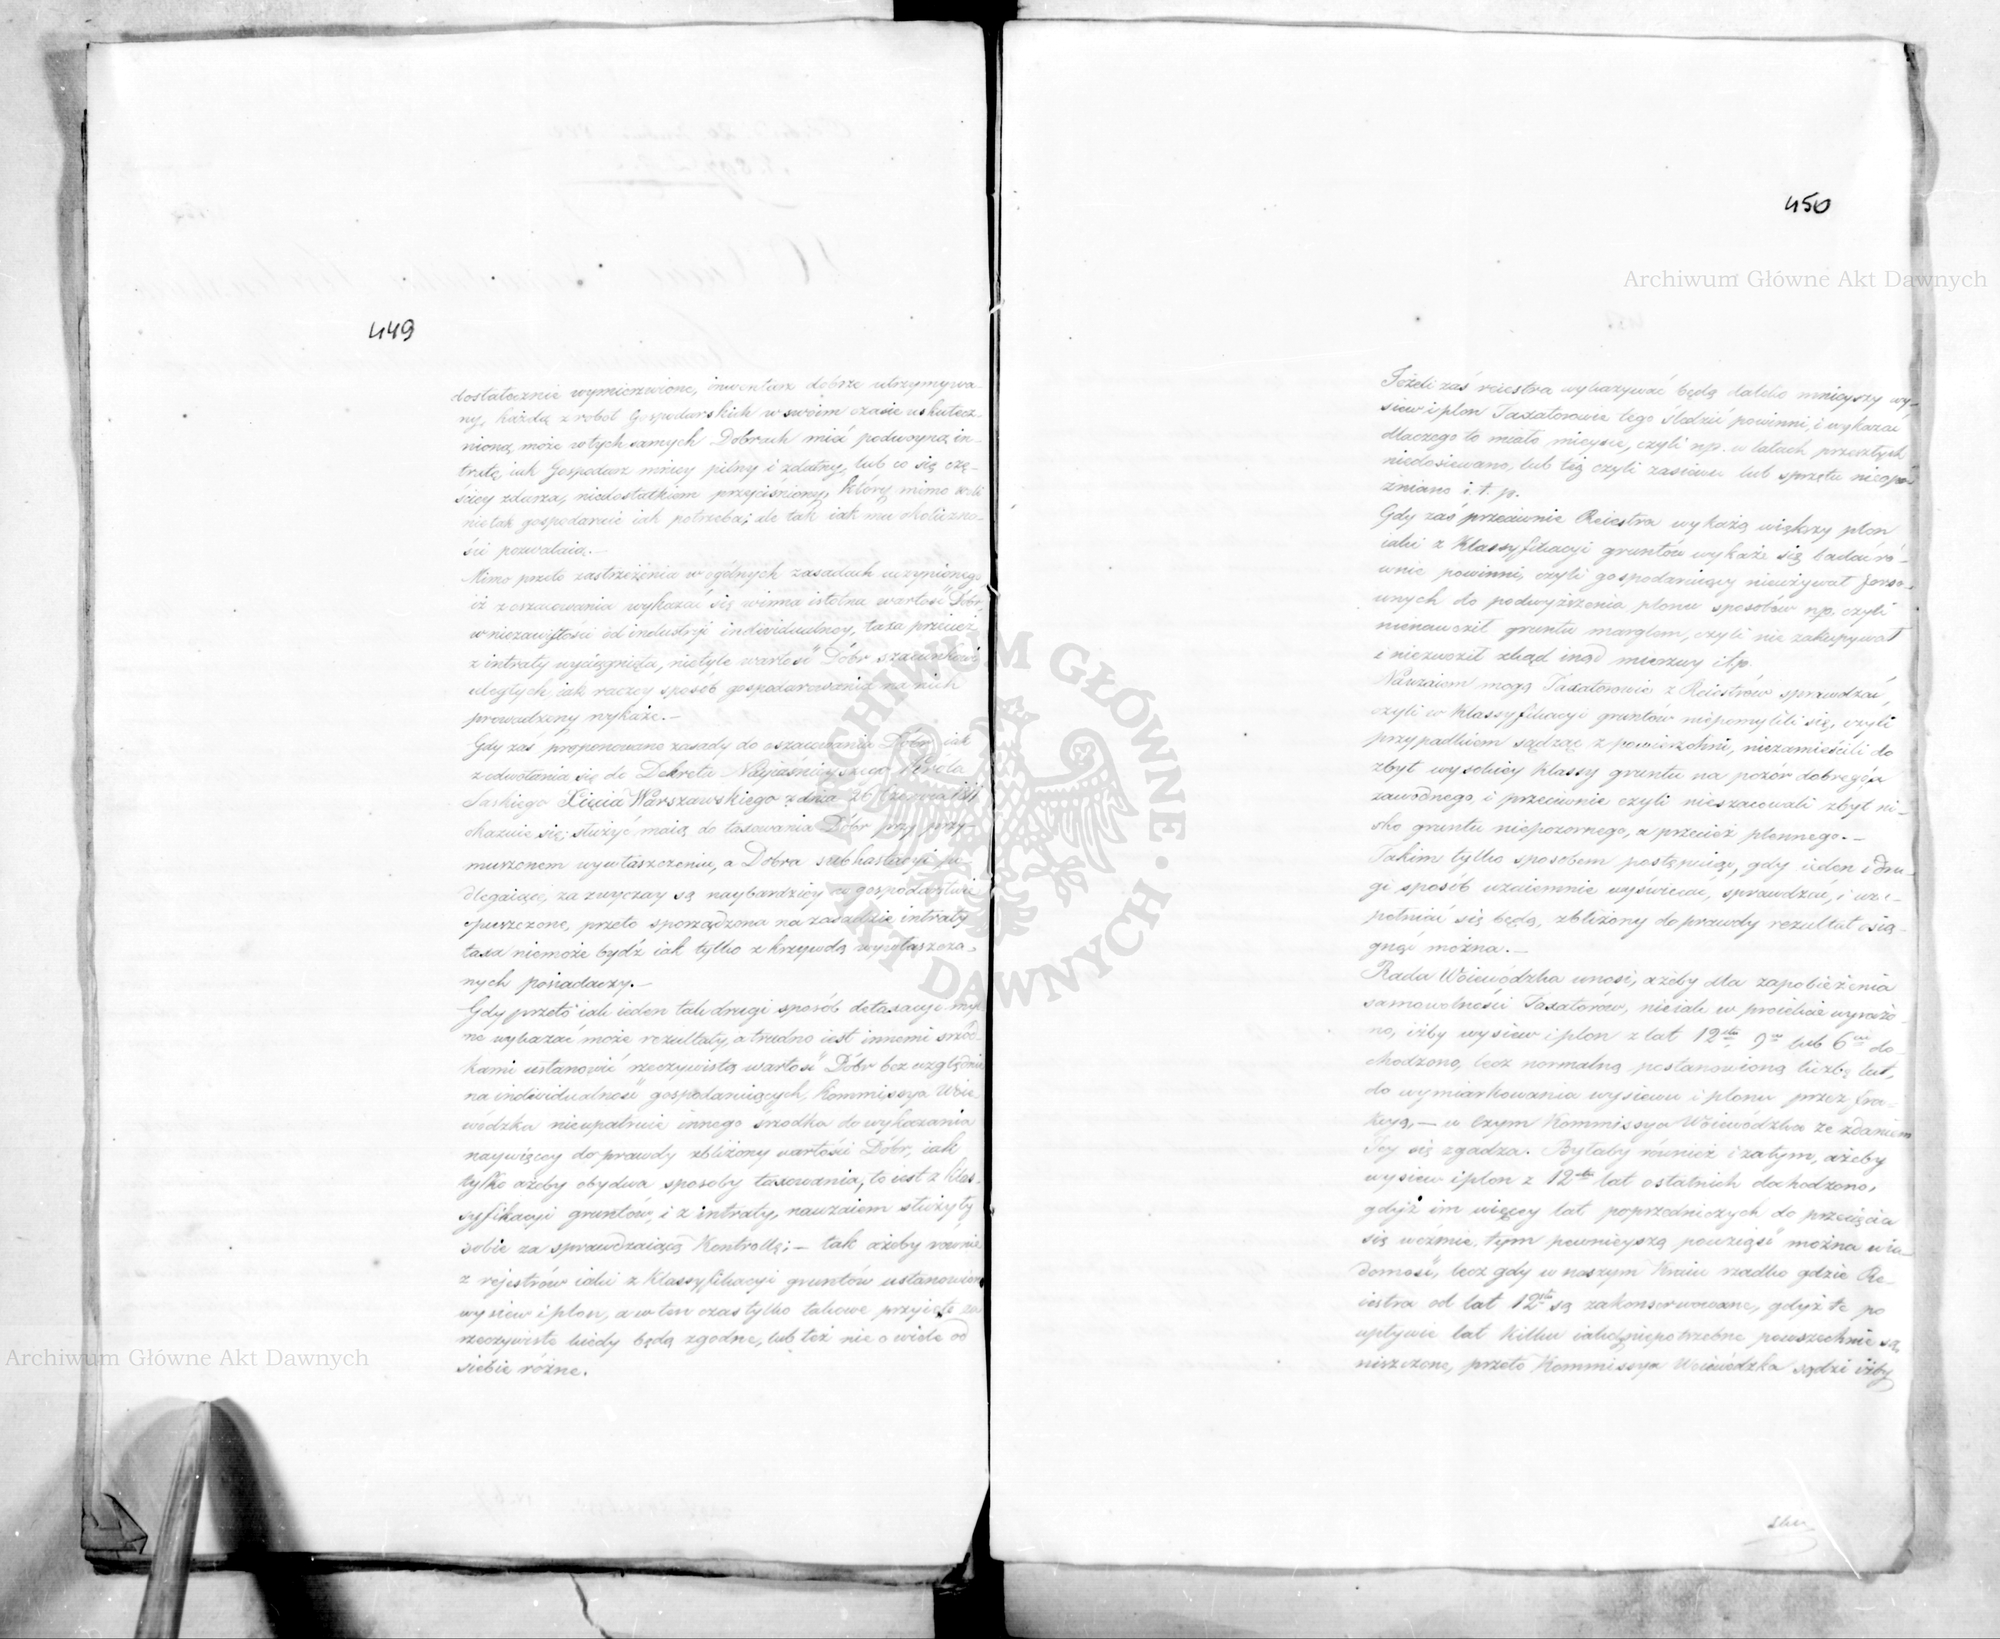 449
dostatecznie wymierzwione, inwentarz dobrze utrzymywa-
ny, każdą z robot Gospodarskich w swoim czasie uskutecz-
nioną, może w tych samych Dobrach mieć podwoyną in-
tratę, iak Gospodarz mniey pilny i zdatny, lub co się czę-
ściey zdarza, niedostatkiem przyciśniony, który mimo woli
nietak gospodaruie iak potrzeba; ale tak iak mu okoliczno-
ści pozwalaią.—
Mimo przeto zastrzeżenia w ogólnych zasadach uczynionego
iż z oszacowania wykazać się winna istotna wartość Dóbr,
w niezawisłości od industryi individualney, taxa przecież
z intraty wyciągnięta, nietyle wartość Dóbr szacunkowi
uległych, iak raczey sposób gospodarowania na nich
prowadzony wykaże.—
Gdy zaś proponowane zasady do oszacowania Dóbr, iak
z odwołania się do Dekretu Nayiaśnieyszego Króla
Saskiego Xięcia Warszawskiego z dnia 26 Czerwca 1811
okazuie się; służyć maią do taxowania Dóbr przy przy-
muszonem wywłaszczeniu, a Dobra subhastacyi po-
dlegaiące, za zwyczay są naybardziey w gospodarstwie
opuszczone, przeto sporządzona na zasadzie intraty
taxa niemoże bydź iak tylko z krzywdą wywłaszcza-
nych posiadaczy.—
Gdy przeto iak ieden tak drugi sposób detaxacyi myl-
ne wykazać może rezultaty, a trudno iest innemi środ-
kami ustanowić rzeczywistą wartość Dóbr bez względu
na individualność gospodaruiących, Kommissya Woie-
wódzka nieupatruie innego środka do wykazania
naywięcey do prawdy zbliżoney wartości Dóbr, iak
tylko ażeby obydwa sposoby taxowania, to iest z Klas-
syfikacyi gruntów, i z intraty, nawzaiem służyły
sobie za sprawdzaiącą Kontrollę; — tak ażeby równie
z rejestrów iako z Klassyfikacyi gruntów ustanowiono
wysiew i plon, a w ten czas tylko takowe przyięte za
rzeczywiste kiedy będą zgodne, lub też nie o wiele od
siebie różne.
450
Jeżeli zaś reiestra wykazywać będą daleko mnieyszy wy-
siew i plon Taxatorowie tego śledzić powinni, i wykazać
dlaczego to miało mieysce, czyli np. w latach przeszłych
niedosiewano, lub też czyli zasiewu lub sprzętu nieopóź-
zniano i. t. p.
Gdy zaś przeciwnie Reiestra wykażą większy plon
iaki z Klassyfikacyi gruntów wykaże się badać ró-
wnie powinni, czyli gospodaruiący nieużywał forso-
wnych do podwyższenia plonu sposobów np. czyli
nienawoził gruntu marglem, czyli nie zakupywał
i niezwoził zkąd inąd mierzwy itp.
Nawzaiem mogą Taxatorowie z Reiestrów sprawdzać,
czyli w Klassyfikacyi gruntów niepomylili się, czyli
przypadkiem sądząc z powierzchni, niezamieścili do
zbyt wysokiey klassy gruntu na pozór dobrego a
zawodnego, i przeciwnie czyli nieszacowali zbyt ni-
sko gruntu niepozornego, a przecież plennego.—
Takim tylko sposobem postępuiąc, gdy ieden i dru-
gi sposób wzaiemnie wyświecać, sprawdzać, i uzu-
pełniać się będą, zbliżony do prawdy rezultat osią-
gnąć można.—
Rada Woiewódzka wnosi, ażeby dla zapobieżenia
samowolności Taxatorów, nieiak w proiekcie wyrażo-
no, iżby wysiew i plon z lat 12stu 9iu lub 6iu do-
chodzono, lecz normalną postanowioną liczbę lat,
do wymiarkowania wysiewu i plonu przez fra-
kcyą, — w czym Kommissya Woiewódzka ze zdaniem
Jey się zgadza. Byłaby również i za tym, ażeby
wysiew i plon z 12stu lat ostatnich dochodzono,
gdyż im więcey lat poprzedniczych do przecięcia
się weźmie, tym pewnieyszą powziąść można wia-
domość, lecz gdy w naszym Kraiu rzadko gdzie Re-
iestra od lat 12stu są zakonserwowane, gdyż te po
upływie lat kilku iako niepotrzebne powszechnie są
niszczone, przeto Kommissya Woiewódzka sądzi iżby